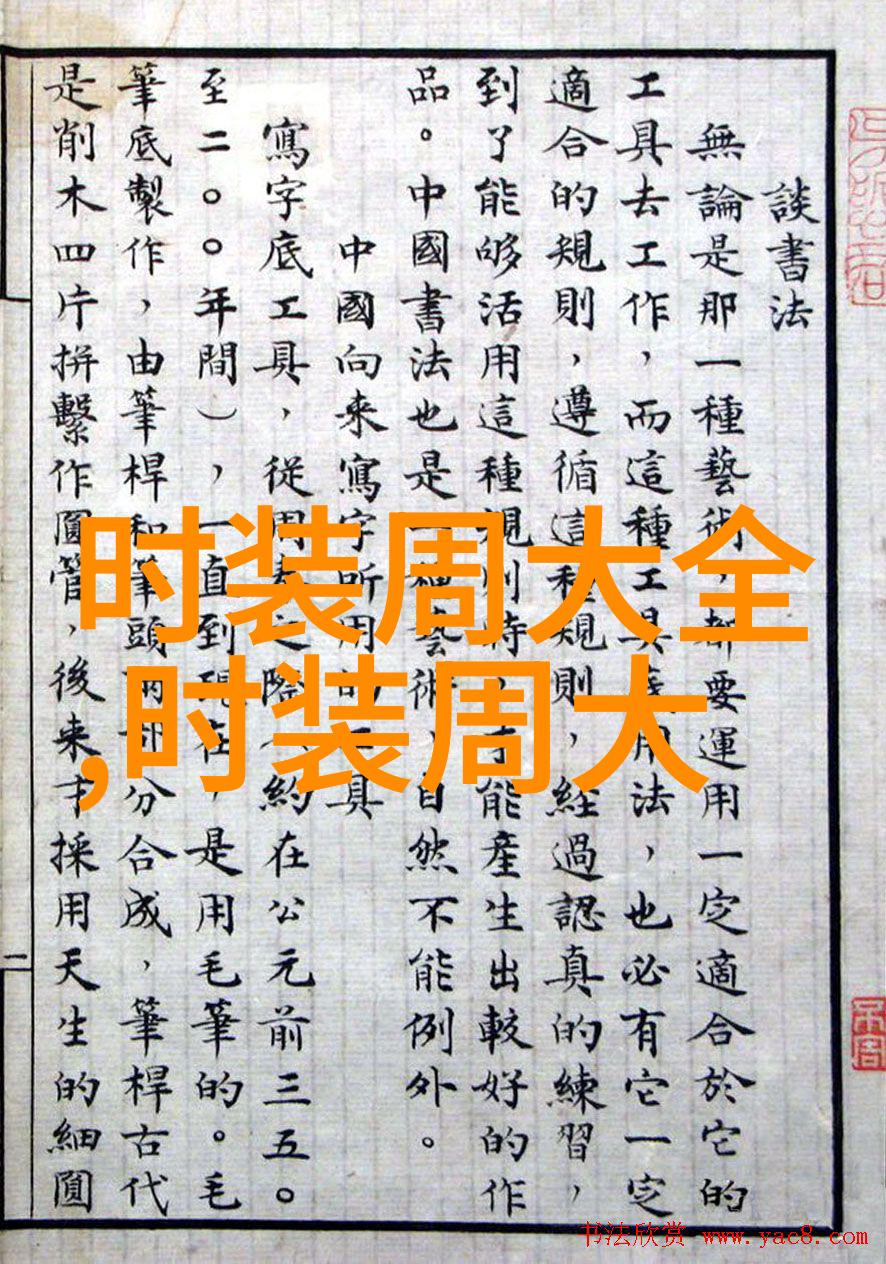 談書法
無論是那一種藝術，都要運用一定適合於它的
工具去工作，而這種工具用法，也必有它一定
適合的規則，遵循這種規則，經過認真的練習，
到了能够活用這種規則時，才能產生出較好的作
品。中國書法也是一種藝術，自然不能例外。
中國向来寫字所用的工具
寫字底工具，從周之際約在公元前三五〇
至二〇〇年間），一直到現在，是用毛筆的。毛
筆底製作，由筆桿和筆頭兩部分合成，筆桿古代
是削木四片拼繫作圓管，後来才採用天生的細圓
二
时装周大全
,时装周大
书法欣赏 www.yac8.com